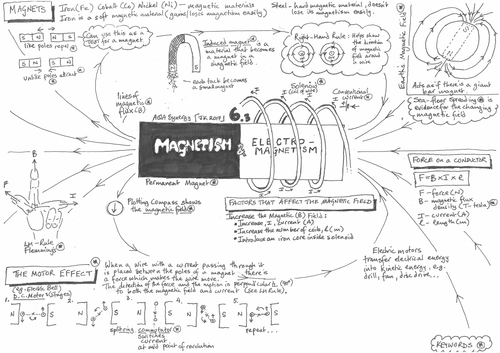 MAGNETS
Iron (Fe) Cobalt (Co) Nickel (Ni) - Magnetic materials
Iron is a soft magnetic material (gains/loses magnetism easily)
Steel - hard magnetic material, doesn't lose its magnetism easily.
S N S N
like poles repel
Can use this as a test for a magnet
N S N S
unlike poles attract
Induced magnet is a material that becomes a magnet in a magnetic field
each tack becomes a small magnet
Right-Hand Rule: helps show the direction of magnetic field around a wire
Earth's Magnetic Field
Acts as if there is a giant bar magnet.
Sea-floor Spreading is evidence for the changing magnetic field
lines of magnetic flux (B)
Solenoid
(coil of wire)
Conventional current
AQA Synergy
6.3
MAGNETISM & ELECTRO-MAGNETISM
Permanent Magnet
Plotting Compass shows the magnetic field
FACTORS THAT AFFECT THE MAGNETIC FIELD
Increase the Magnetic (B) Field:
• Increase, I, current (A)
• Increase the number of coils
• Introduce an iron core inside solenoid
FORCE ON A CONDUCTOR
F = B x I x l
F - force (N)
B - magnetic flux density (T - tesla)
I - current (A)
L - length (m)
B
F
I
LH-Rule
Flemmings
Electric motors transfer electrical energy into kinetic energy, e.g. drill, fan, disc drive...
THE MOTOR EFFECT
(eg. Electric Bell)
D.C. Motor (Stages)
When a wire with a current passing through it is placed between the poles of a magnet there is a force which makes the wire move.
The direction of the force and the motion is perpendicular (90°) to both the magnetic field and current (see LH Rule).
1. 2. 3. 4. 5.
N S N S N S N S N S
split-ring commutator switches current at mid point of revolution
repeat...
KEYWORDS